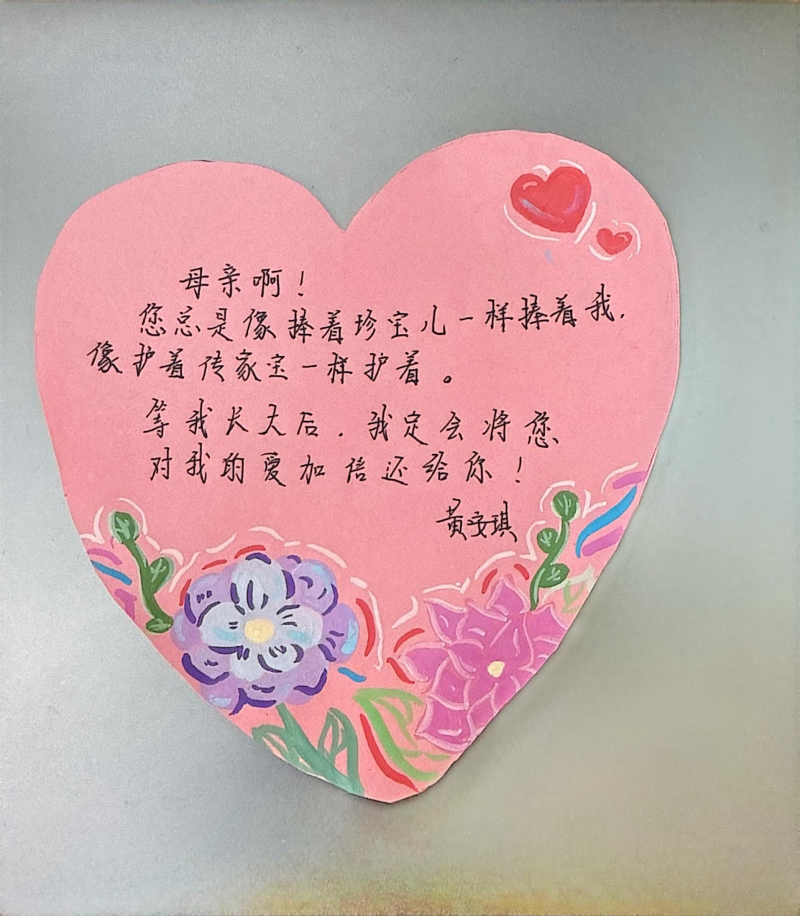 母亲啊！
您总是像捧着珍宝儿一样捧着我.
像护着传家宝一样护着。
等我长大后.我定会将您
对我的爱加倍还给你！
黄安琪